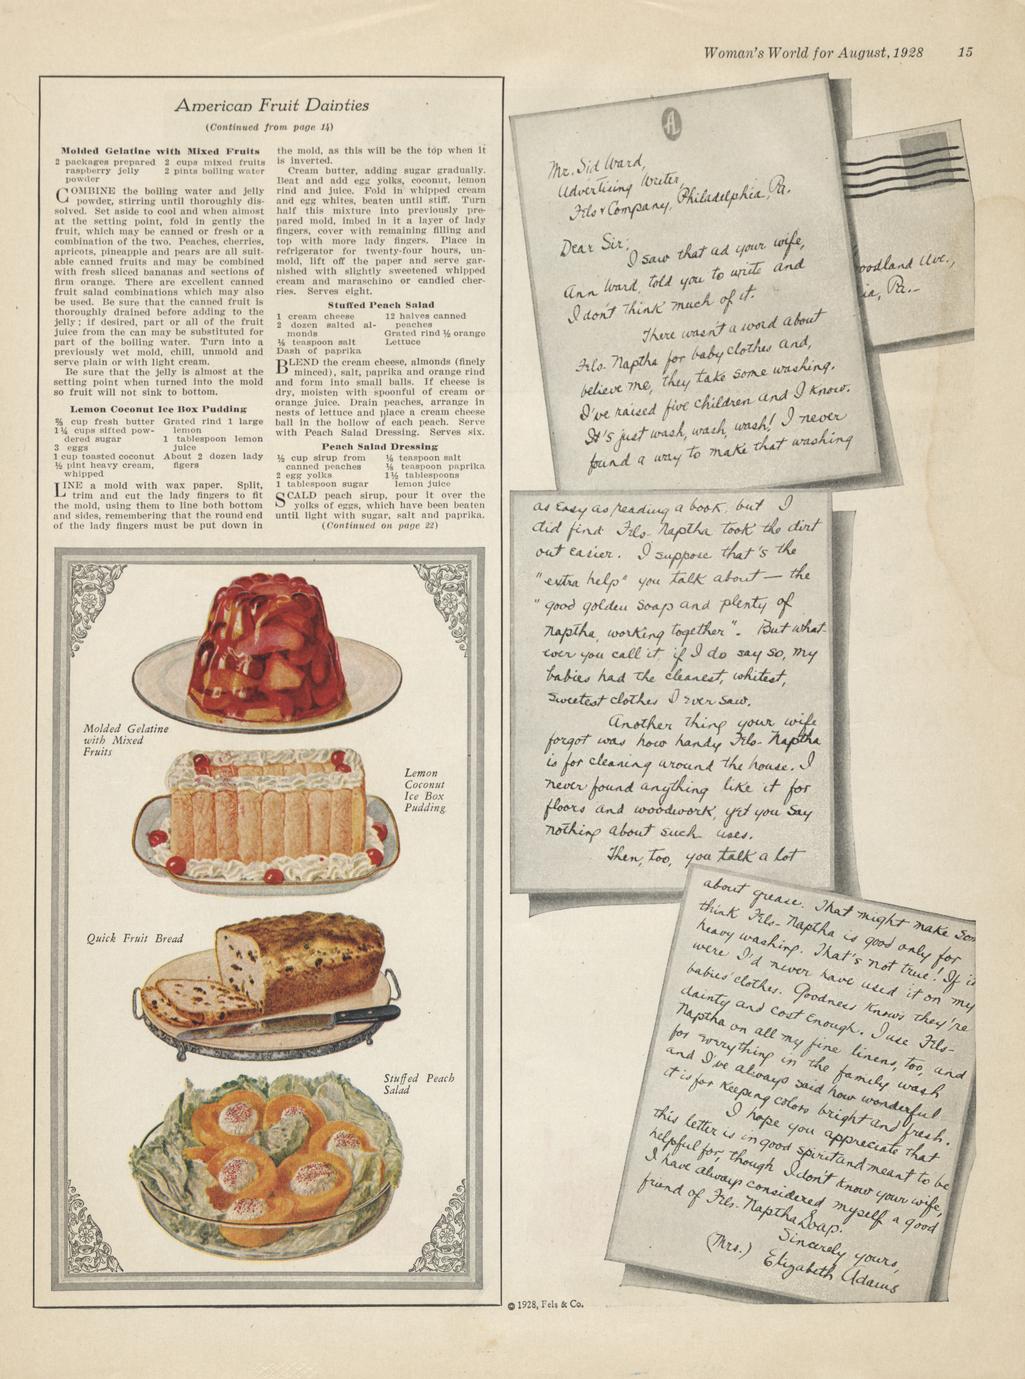 Woman's World for August, 1928 15
American Fruit Dainties
(Continued from page 14)
Molded Gelatine with Mixed Fruits
2 packages prepared
raspberry jelly
powder
2 cups mixed fruits
2 pints boiling water
COMBINE the boiling water and jelly
powder, stirring until thoroughly dis-
solved. Set aside to cool and when almost
at the setting point, fold in gently the
fruit, which may be canned or fresh or a
combination of the two. Peaches, cherries,
apricots, pineapple and pears are all suit-
able canned fruits and may be combined
with fresh sliced bananas and sections of
firm orange. There are excellent canned
fruit salad combinations which may also
be used. Be sure that the canned fruit is
thoroughly drained before adding to the
jelly; if desired, part or all of the fruit
juice from the can may be substituted for
part of the boiling water. Turn into a
previously wet mold, chill, unmold and
serve plain or with light cream.
Be sure that the jelly is almost at the
setting point when turned into the mold
so fruit will not sink to bottom.
Lemon Coconut Ice Box Pudding
cup fresh butter
1¼ cups sifted pow-
dered sugar
3 eggs
1 cup toasted coconut
½ pint heavy cream,
whipped
Grated rind 1 large
lemon
1 tablespoon lemon
juice
About 2 dozen lady
fingers
LINE a mold with wax paper. Split,
trim and cut the lady fingers to fit
the mold, using them to line both bottom
and sides, remembering that the round end
of the lady fingers must be put down in
the mold, as this will be the top when it
is inverted.
Cream butter, adding sugar gradually.
Beat and add egg yolks, coconut, lemon
rind and juice. Fold in whipped cream
and egg whites, beaten until stiff. Turn
half this mixture into previously pre-
pared mold, imbed in it a layer of lady
fingers, cover with remaining filling and
top with more lady fingers. Place in
refrigerator for twenty-four hours, un-
mold, lift off the paper and serve gar-
nished with slightly sweetened whipped
cream and maraschino or candied cher-
ries. Serves eight.
Stuffed Peach Salad
1 cream cheese
2 dozen salted al-
monds
teaspoon salt
Dash of paprika
12 halves canned
peaches
Grated rind ½ orange
Lettuce
BLEND the cream cheese, almonds (finely
minced), salt, paprika and orange rind
and form into small balls. If cheese is
dry, moisten with spoonful of cream or
orange juice. Drain peaches, arrange in
nests of lettuce and place a cream cheese
ball in the hollow of each peach. Serve
with Peach Salad Dressing. Serves six.
Peach Salad Dressing
½ cup sirup from
canned peaches
2 egg yolks
1 tablespoon sugar
teaspoon salt
teaspoon paprika
1½ tablespoons
lemon juice
SCALD peach sirup, pour it over the
yolks of eggs, which have been beaten
until light with sugar, salt and paprika.
(Continued on page 22)
Molded Gelatine
with Mixed
Fruits
Lemon
Coconut
Ice Box
Pudding
Quick Fruit Bread
Stuffed Peach
Salad
A
Mr. Sid Ward,
Advertising Writer,
Fels & Company, Philadelphia, Pa.
Dear Sir:
I saw that ad your wife,
Ann Ward, told you to write and
I don't think much of it.
There wasn't a word about
Fels-Naptha for baby clothes and,
believe me, they take some washing.
I've raised five children and I know.
It's just wash, wash, wash! I never
found a way to make that washing
oodland Ave.,
ia, Pa.—
as easy as reading a book, but I
did find Fels-Naptha took the dirt
out easier. I suppose that's the
"extra help" you talk about — the
"good golden soap and plenty of
naptha, working together". But what-
ever you call it, if I do say so, my
babies had the cleanest, whitest,
sweetest clothes I ever saw.
Another thing your wife
forgot was how handy Fels-Naptha
is for cleaning around the house. I
never found anything like it for
floors and woodwork, yet you say
nothing about such uses.
Then, too, you talk a lot
about grease. That might make som
think Fels-Naptha is good only for
heavy washing. That's not true! If it
were I'd never have used it on my
babies' clothes. Goodness knows they're
dainty and cost enough. I use Fels-
Naptha on all my fine linens, too, and
for everything in the family wash
and I've always said how wonderful
it is for keeping colors bright and fresh.
I hope you appreciate that
this letter is in good spirit and meant to be
helpful for, though I don't know your wife,
I have always considered myself a good
friend of Fels-Naptha Soap.
Sincerely yours,
(Mrs.) Elizabeth Adams
© 1928, Fels & Co.